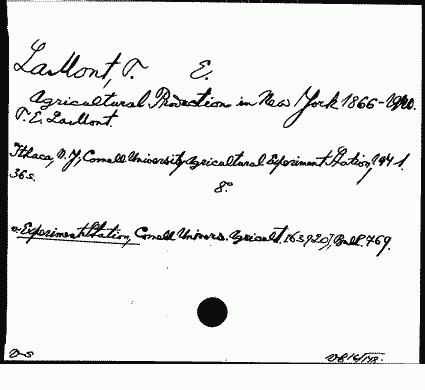 LaMont, T. E.
Agricultural Production in New York 1866-1940.
T. E. LaMont.
Ithaca, N.Y., Cornell University Agricultural Experiment Station, 1941.
36 s. 8°.
Experiment Station, Cornell Univers. Agricult. Bull. 769.